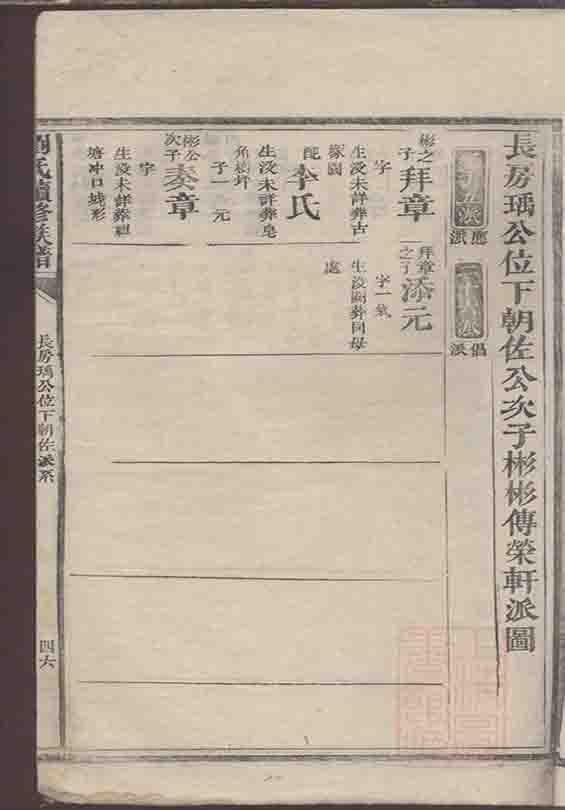 長房瑀公位下朝佐公次子彬彬傳榮軒派圖
應派
倡派
彬之子
拜章
字
生沒未詳葬古
家園
配
李氏
生沒未詳葬皂
角樹坪
子一
元
彬公次子
奏章
字
生沒未詳葬祖
塘冲口蛾形
拜章之子
添元
字一氣
生沒闕葬同母
處
劉氏續修族譜
長房瑀公位下朝佐派系
四六